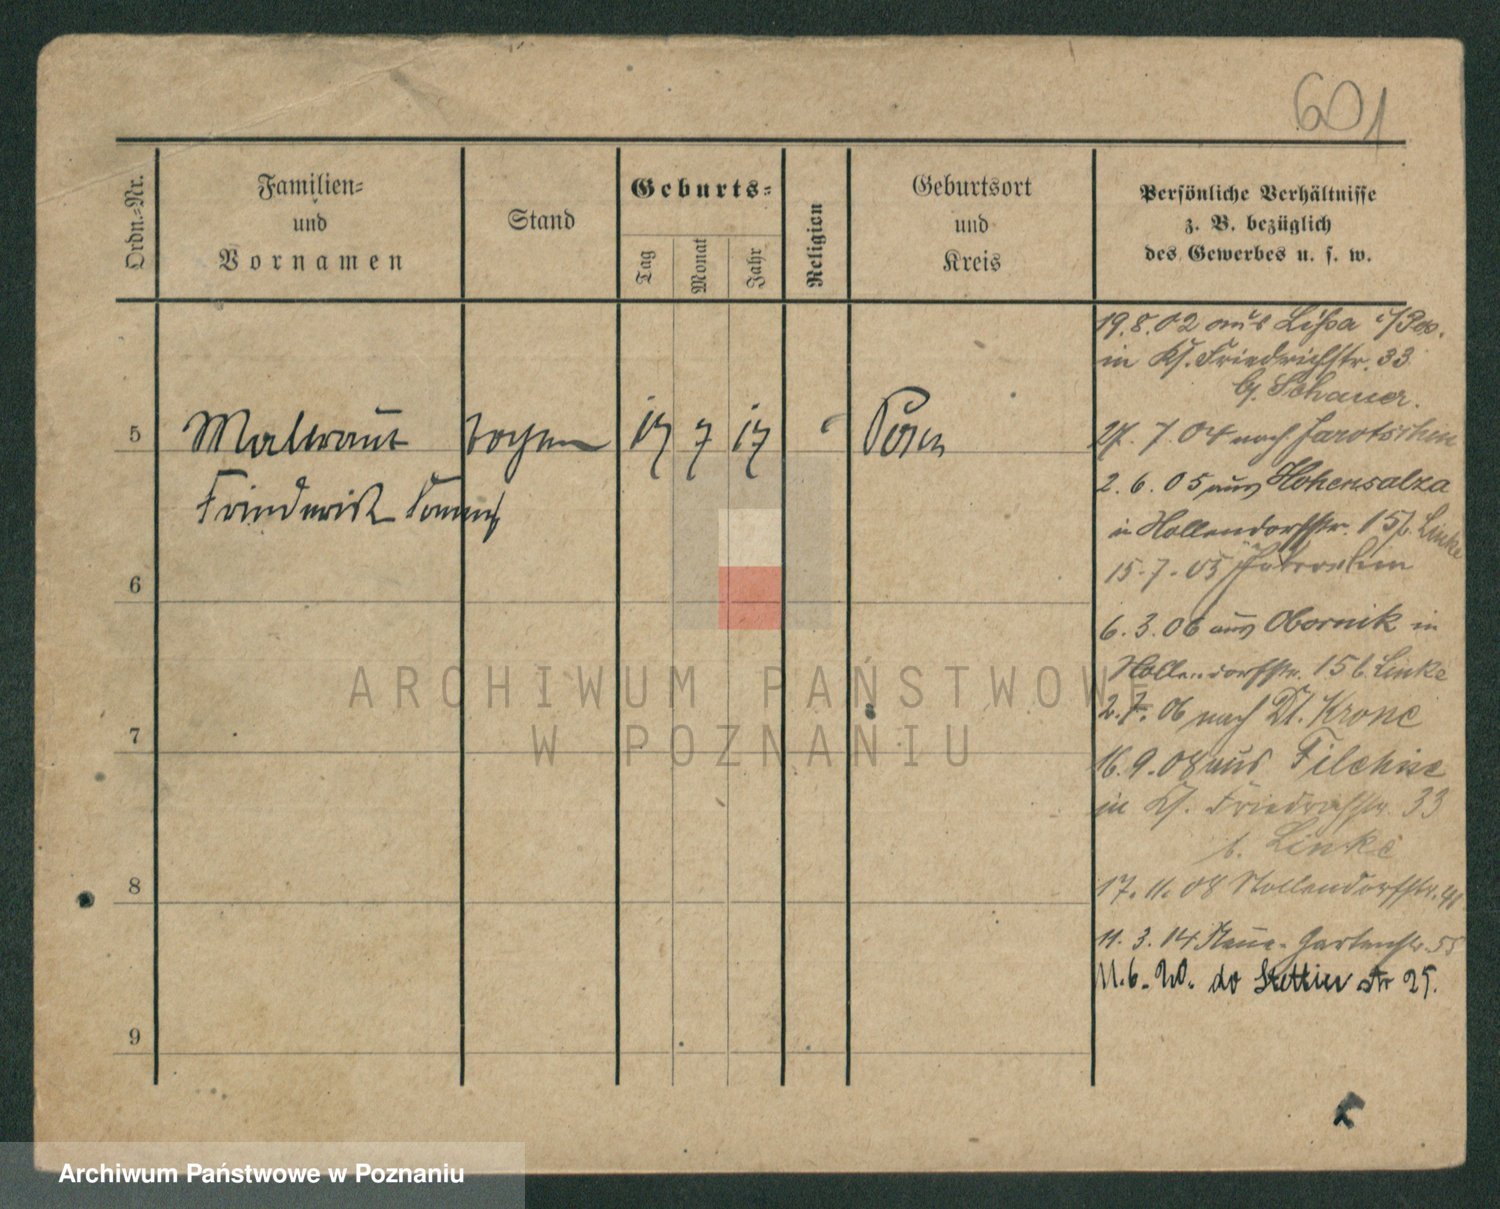 601
Ordn.=Nr.
Familien=
und
Vornamen
Stand
Geburts=
Tag
Monat
Jahr
Religion
Geburtsort
und
Kreis
Persönliche Verhältnisse
z. B. bezüglich
des Gewerbes u. s. w.
19.8.02 aus Lissa i/Pos.
in Friedrichstr. 33
Schauer.
5
17 7 17
Posen
27. 7. 04 nach Jarotschin
2. 6. 05 aus Hohensalza
in Nollendorfstr. 15 b. Linke
6
15. 7. 05
6. 3. 06 aus Obornik in
Nollendorfstr. 15 b. Linke
7
2. 7. 06 nach Dt. Krone
16. 9. 08 aus Filehne
in Friedrichstr. 33
b. Linke
8
17. 11. 08 Nollendorfstr.
11. 3. 14 Neue Gartenstr. 55
11. 6. 20. do Stettiner Str 25.
9
ARCHIWUM PAŃSTWOWE
W POZNANIU
Archiwum Państwowe w Poznaniu